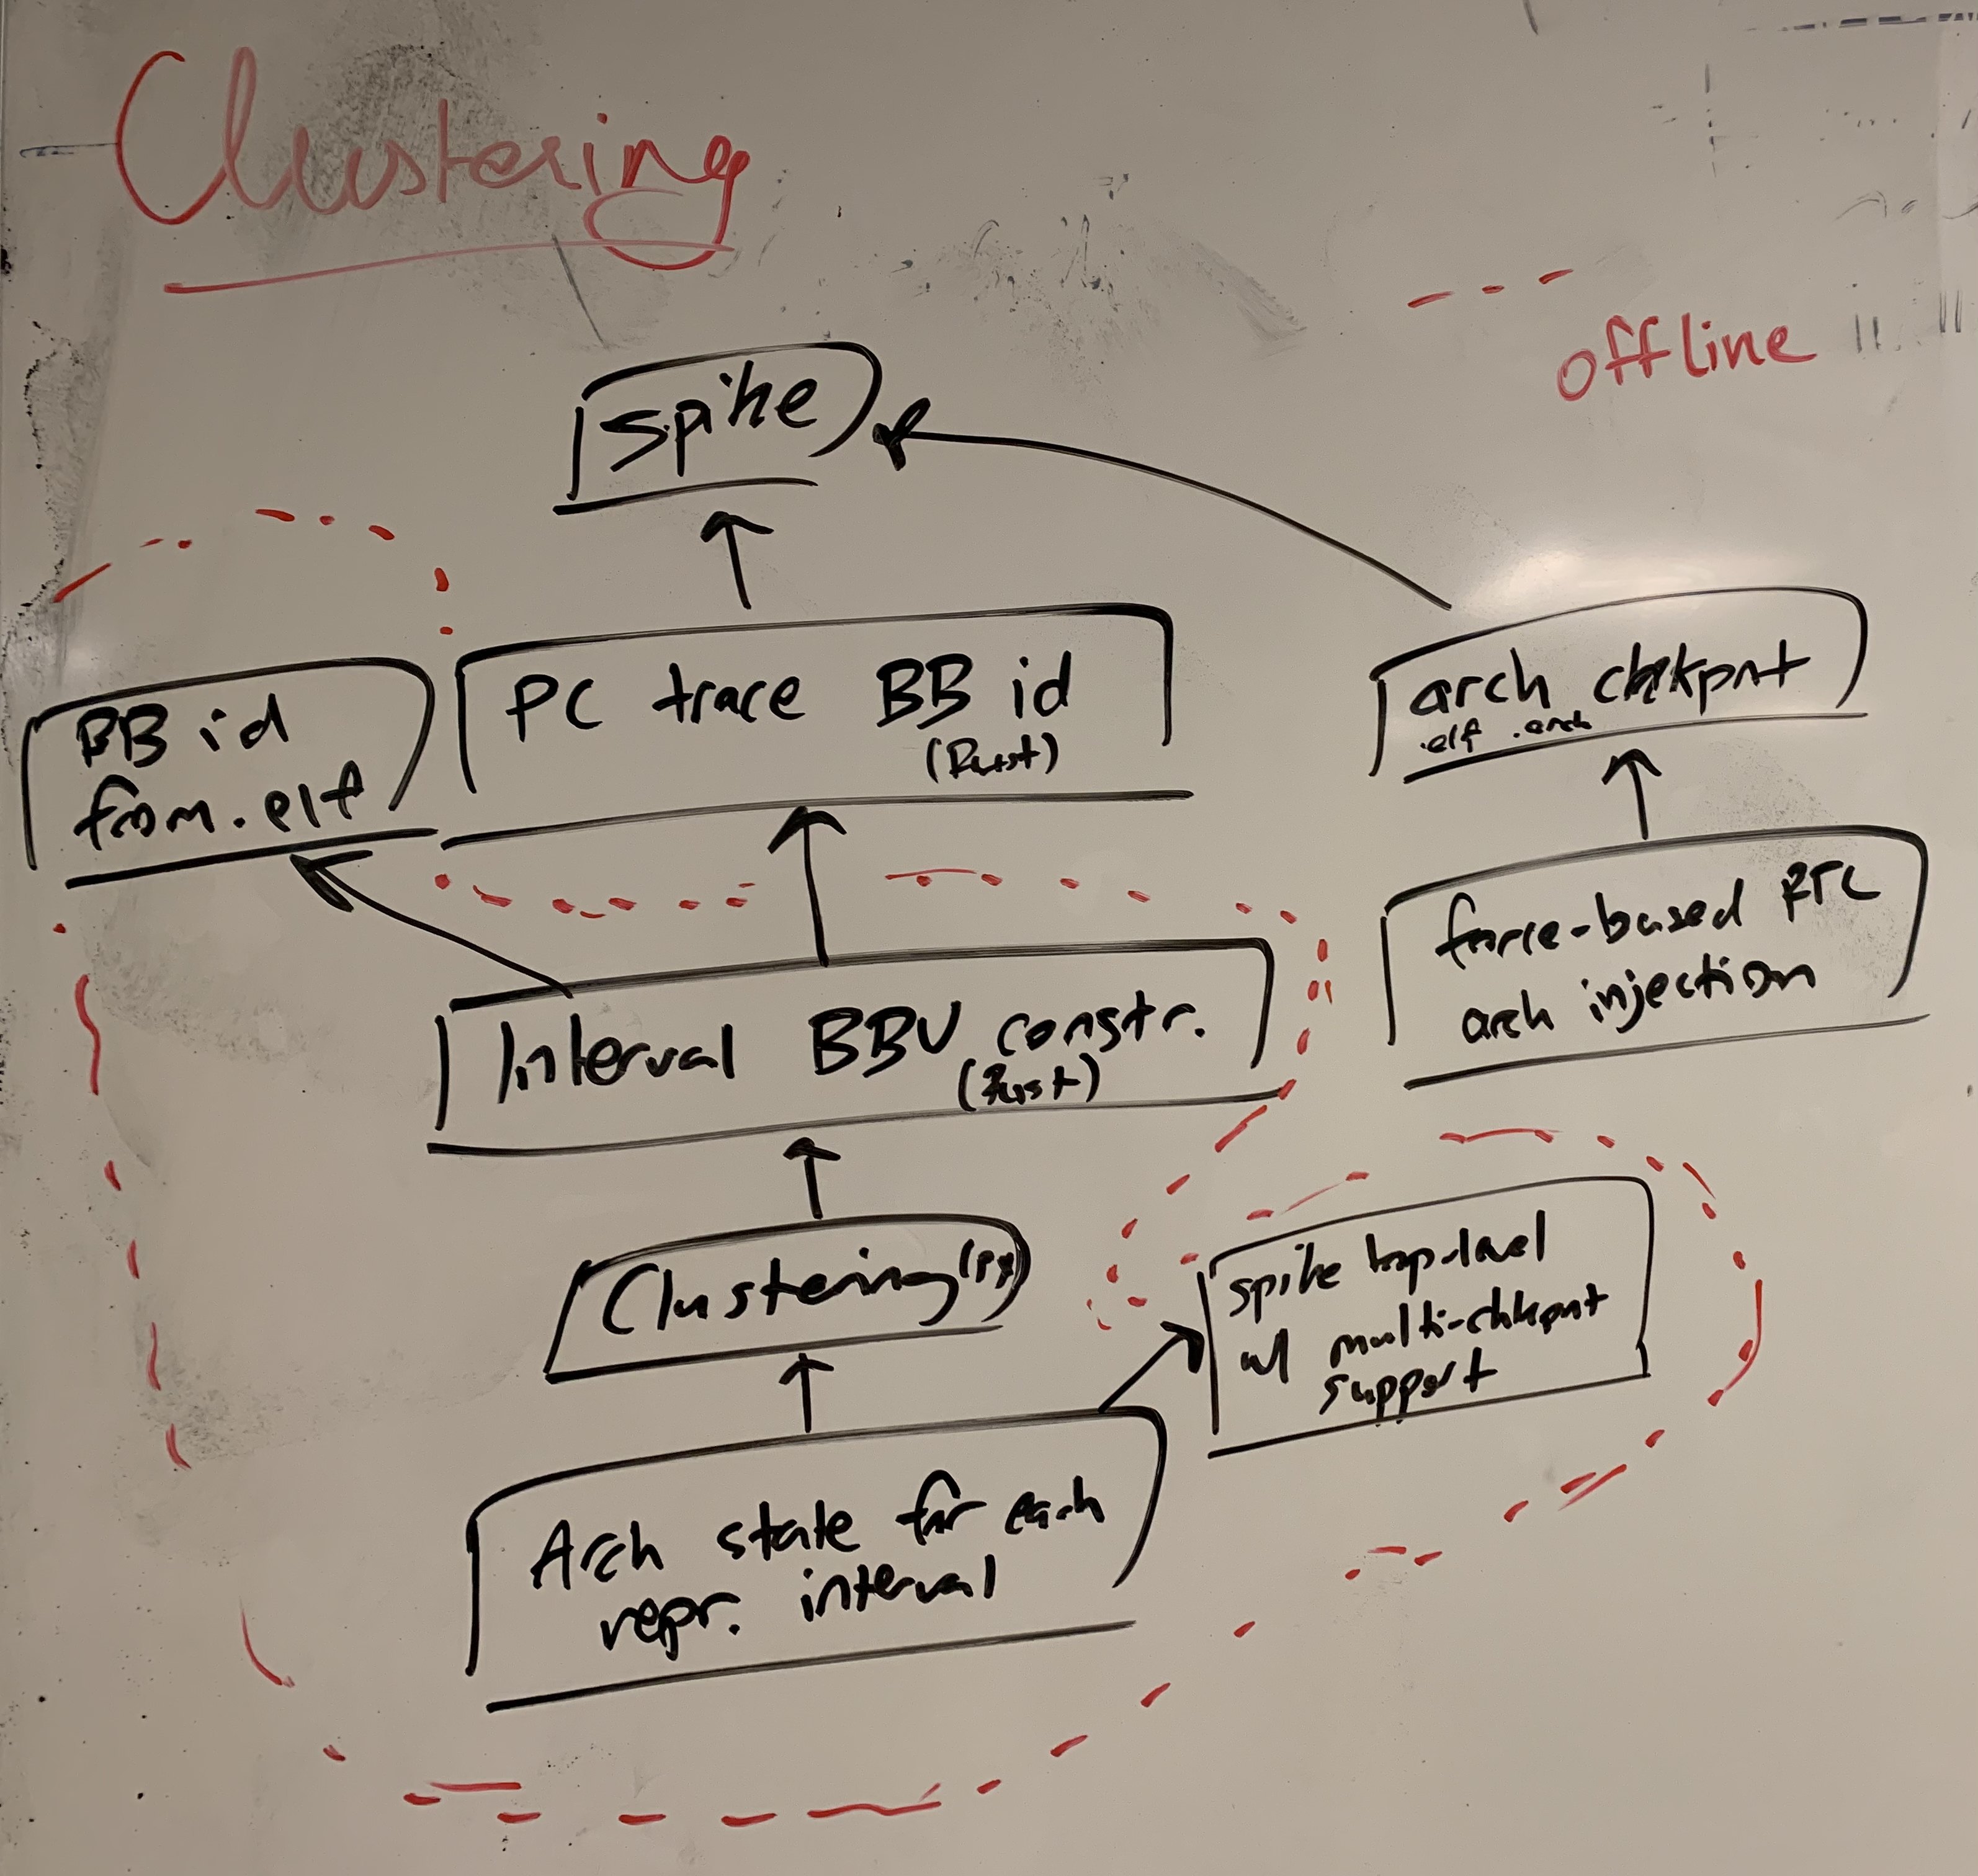 Clustering
offline
spike
PC trace BB id
(Rust)
BB id
from .elf
arch chkpnt
.elf .arch
force-based RTL
arch injection
Interval BBV constr.
(Rust)
Clustering (Py)
spike top-level
w/ multi-chkpnt
support
Arch state for each
repr. interval